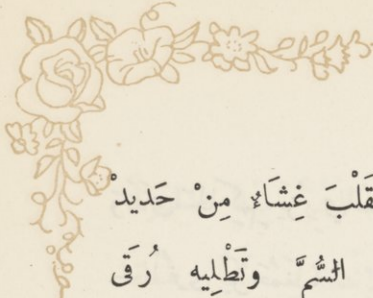 قَلْبَ غِشَاءٌ مِنْ حَديدْ
السُّمَّ وتَطْلِيهِ رُقَى